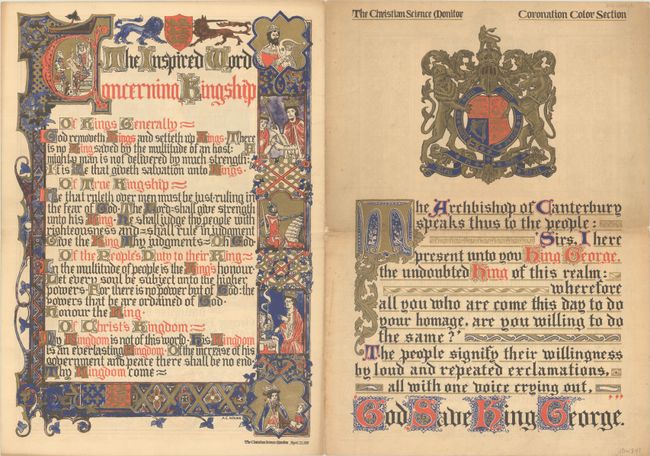 The Inspired Word
Concerning Kingship
Of Kings Generally
God removeth Kings and setteth up Kings. There
is no King saved by the multitude of an host: A
mighty man is not delivered by much strength:
It is He that giveth salvation unto Kings.
Of True Kingship
He that ruleth over men must be just·ruling in
the fear of God·The Lord·shall give strength
unto his King·He shall judge thy people with
righteousness=and=shall rule in judgment
Give the King Thy judgments=Oh God·
Of the People's Duty to their King
In the multitude of people is the King's honour
Let every soul be subject unto the higher
powers·For there is no power but of God: the
powers that be are ordained of God·
Honour the King·
Of Christ's Kingdom
My Kingdom is not of this world·His Kingdom
is an everlasting Kingdom·Of the increase of his
government and peace there shall be no end·
Thy Kingdom come
The Christian Science Monitor
The Christian Science Monitor Coronation Color Section
The Archbishop of Canterbury
speaks thus to the people:
"Sirs, I here
present unto you King George,
the undoubted King of this realm:
wherefore
all you who are come this day to do
your homage, are you willing to do
the same?"
The people signify their willingness
by loud and repeated exclamations,
all with one voice crying out,
God Save King George.